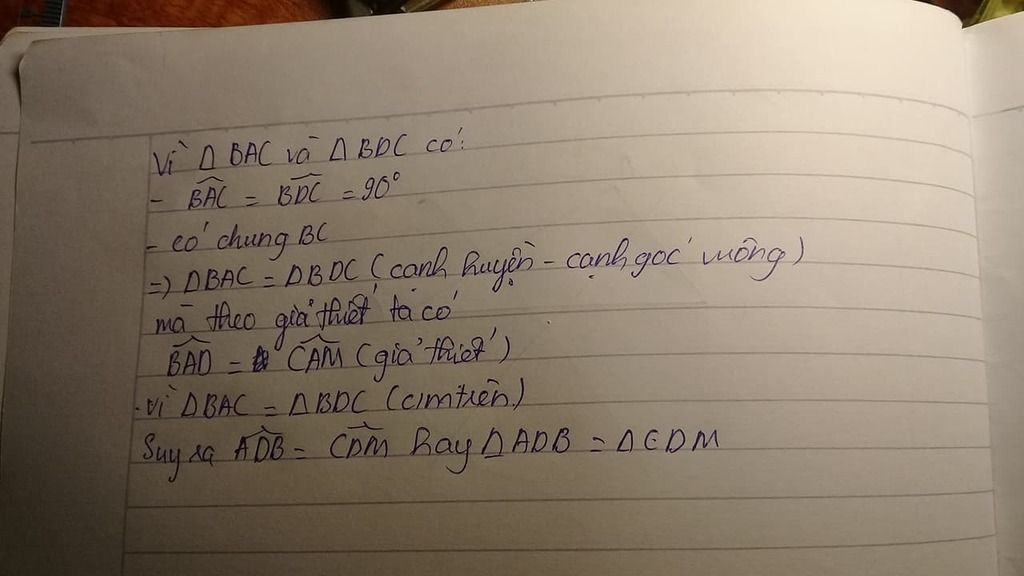 Vì Δ BAC và Δ BDC có:
- BAC = BDC = 90°
- có chung BC
=) ΔBAC = ΔBDC (cạnh huyền - cạnh góc vuông)
mà theo giả thiết ta có
BAD = CAM (giả thiết)
. Vì ΔBAC = ΔBDC (cmtrên)
Suy ra ADB = CDM hay ΔADB = ΔCDM